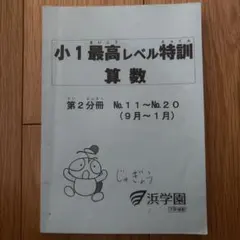 小1最高レベル特訓
算数
第2分冊 No.11～No.20
(9月～1月)
じゅぎょう
浜学園